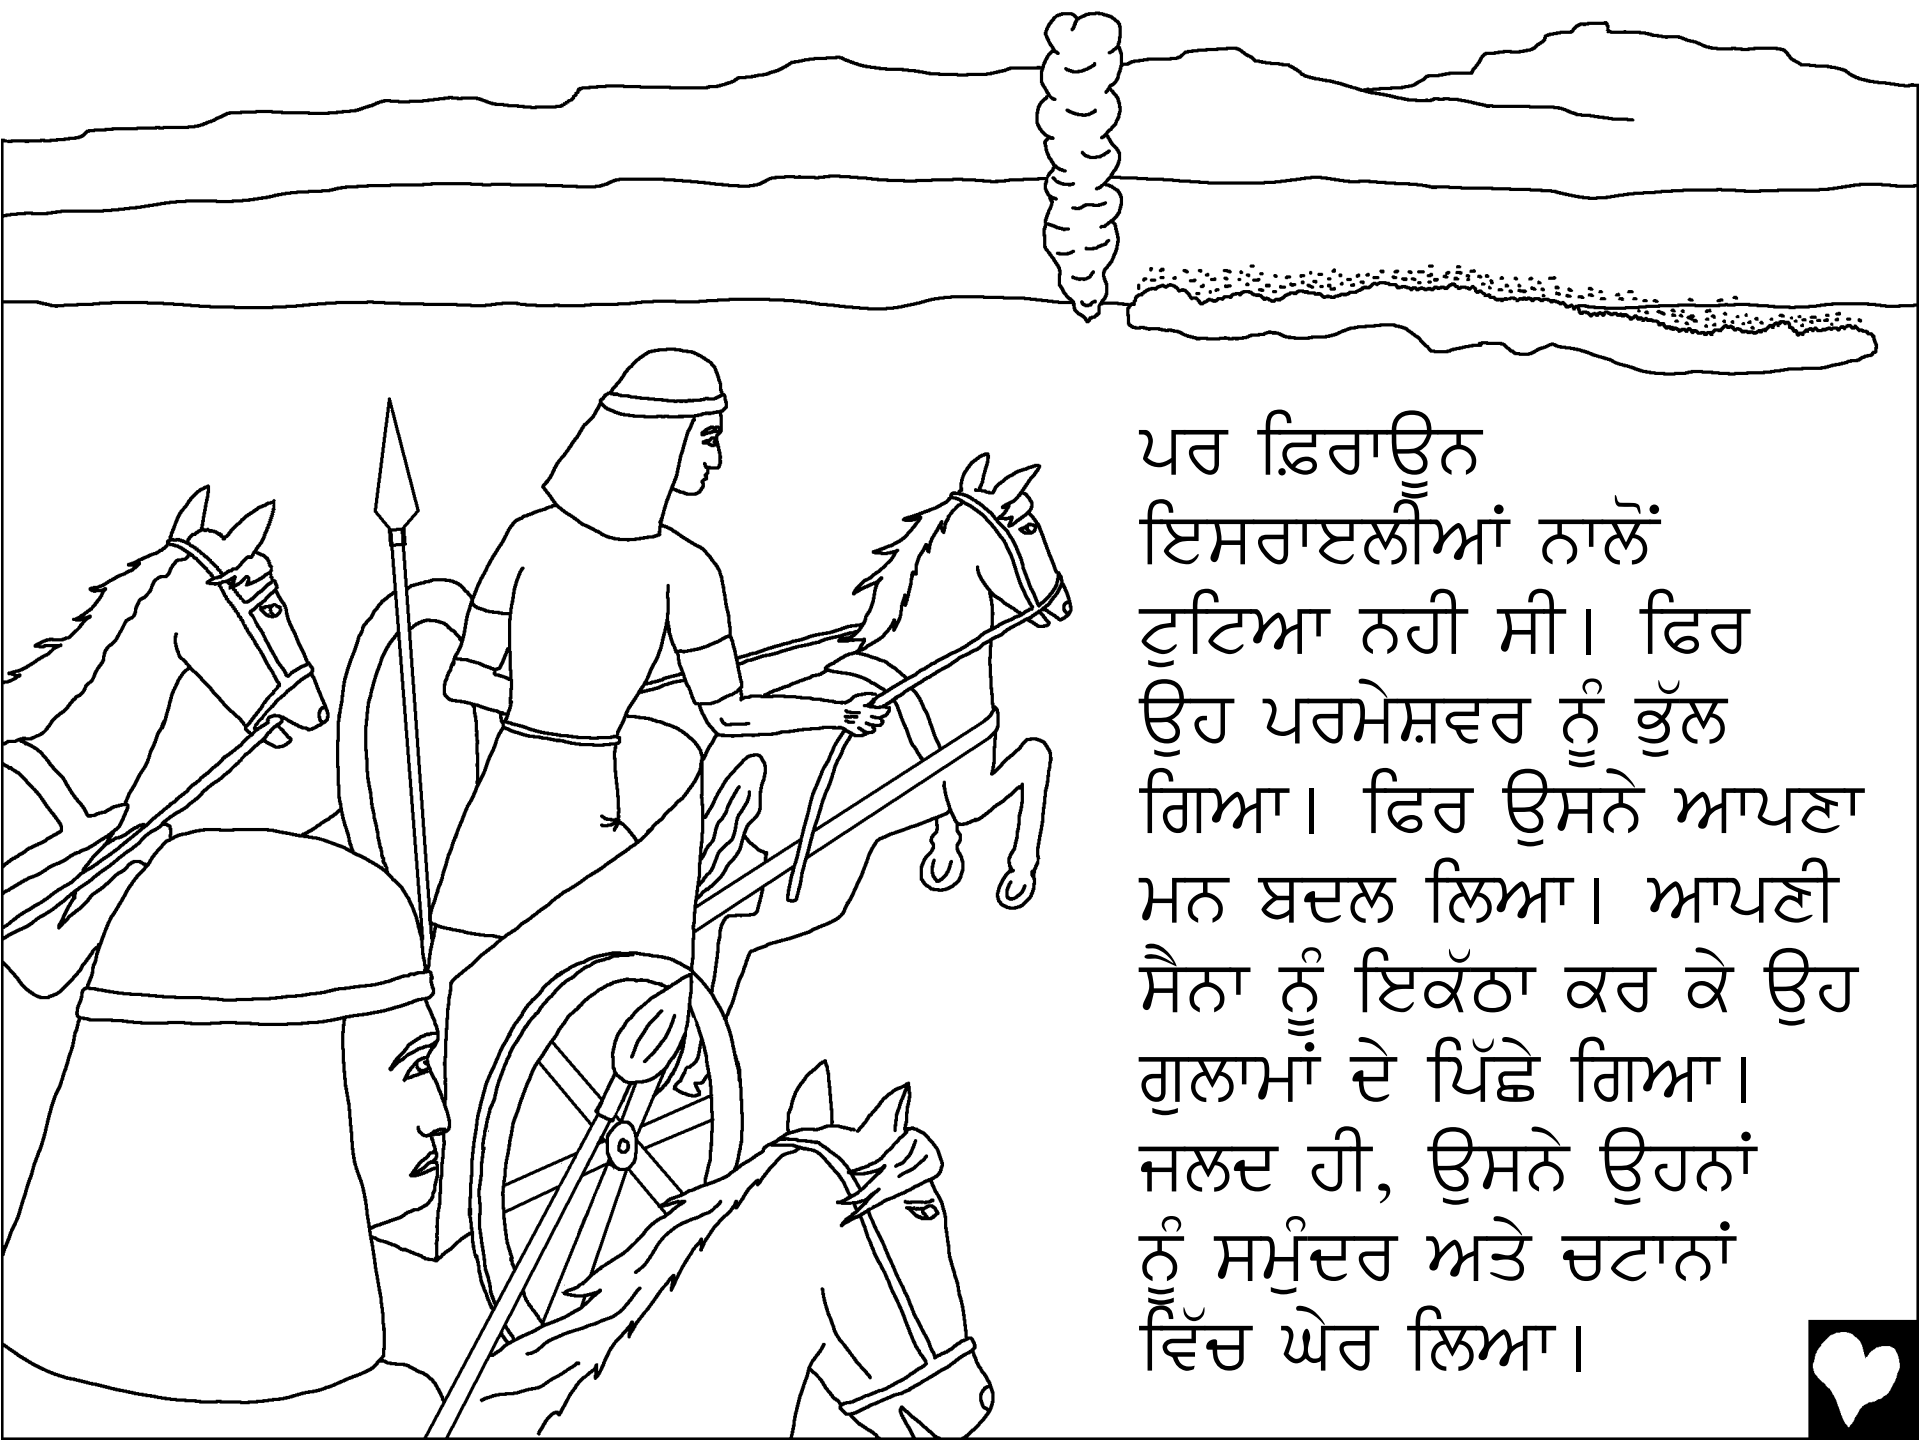 ਪਰ ਫ਼ਿਰਾਊਨ
ਇਸਰਾਏਲੀਆਂ ਨਾਲੋਂ
ਟੁਟਿਆ ਨਹੀ ਸੀ। ਫਿਰ
ਉਹ ਪਰਮੇਸ਼ਵਰ ਨੂੰ ਭੁੱਲ
ਗਿਆ। ਫਿਰ ਉਸਨੇ ਆਪਣਾ
ਮਨ ਬਦਲ ਲਿਆ। ਆਪਣੀ
ਸੈਨਾ ਨੂੰ ਇਕੱਠਾ ਕਰ ਕੇ ਉਹ
ਗੁਲਾਮਾਂ ਦੇ ਪਿੱਛੇ ਗਿਆ।
ਜਲਦ ਹੀ, ਉਸਨੇ ਉਹਨਾਂ
ਨੂੰ ਸਮੁੰਦਰ ਅਤੇ ਚਟਾਨਾਂ
ਵਿੱਚ ਘੇਰ ਲਿਆ।